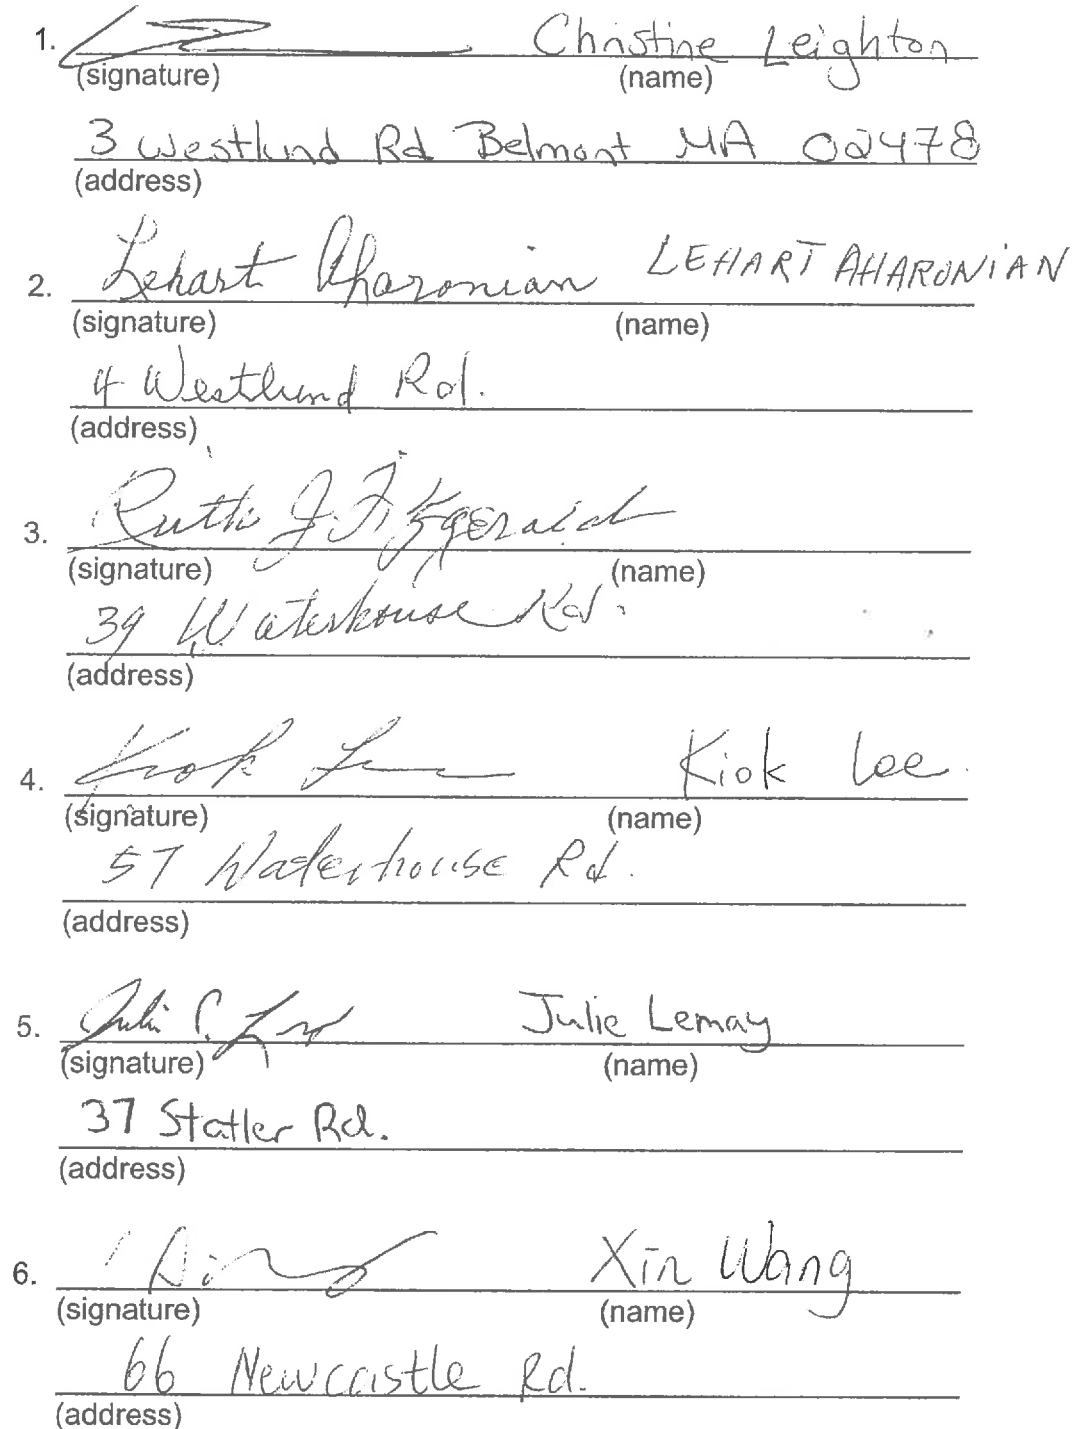 1. Christine Leighton
(signature) (name)
3 Westlund Rd Belmont MA 02478
(address)
2. Lehart Aharonian LEHART AHARONiAN
(signature) (name)
4 Westlund Rd.
(address)
3. Ruth J. Fitzgerald
(signature) (name)
39 Waterhouse Rd.
(address)
4. Kiok Lee Kiok Lee
(signature) (name)
57 Waterhouse Rd.
(address)
5. Julie Lemay
(signature) (name)
37 Statler Rd.
(address)
6. Xin Wang
(signature) (name)
66 Newcastle Rd.
(address)